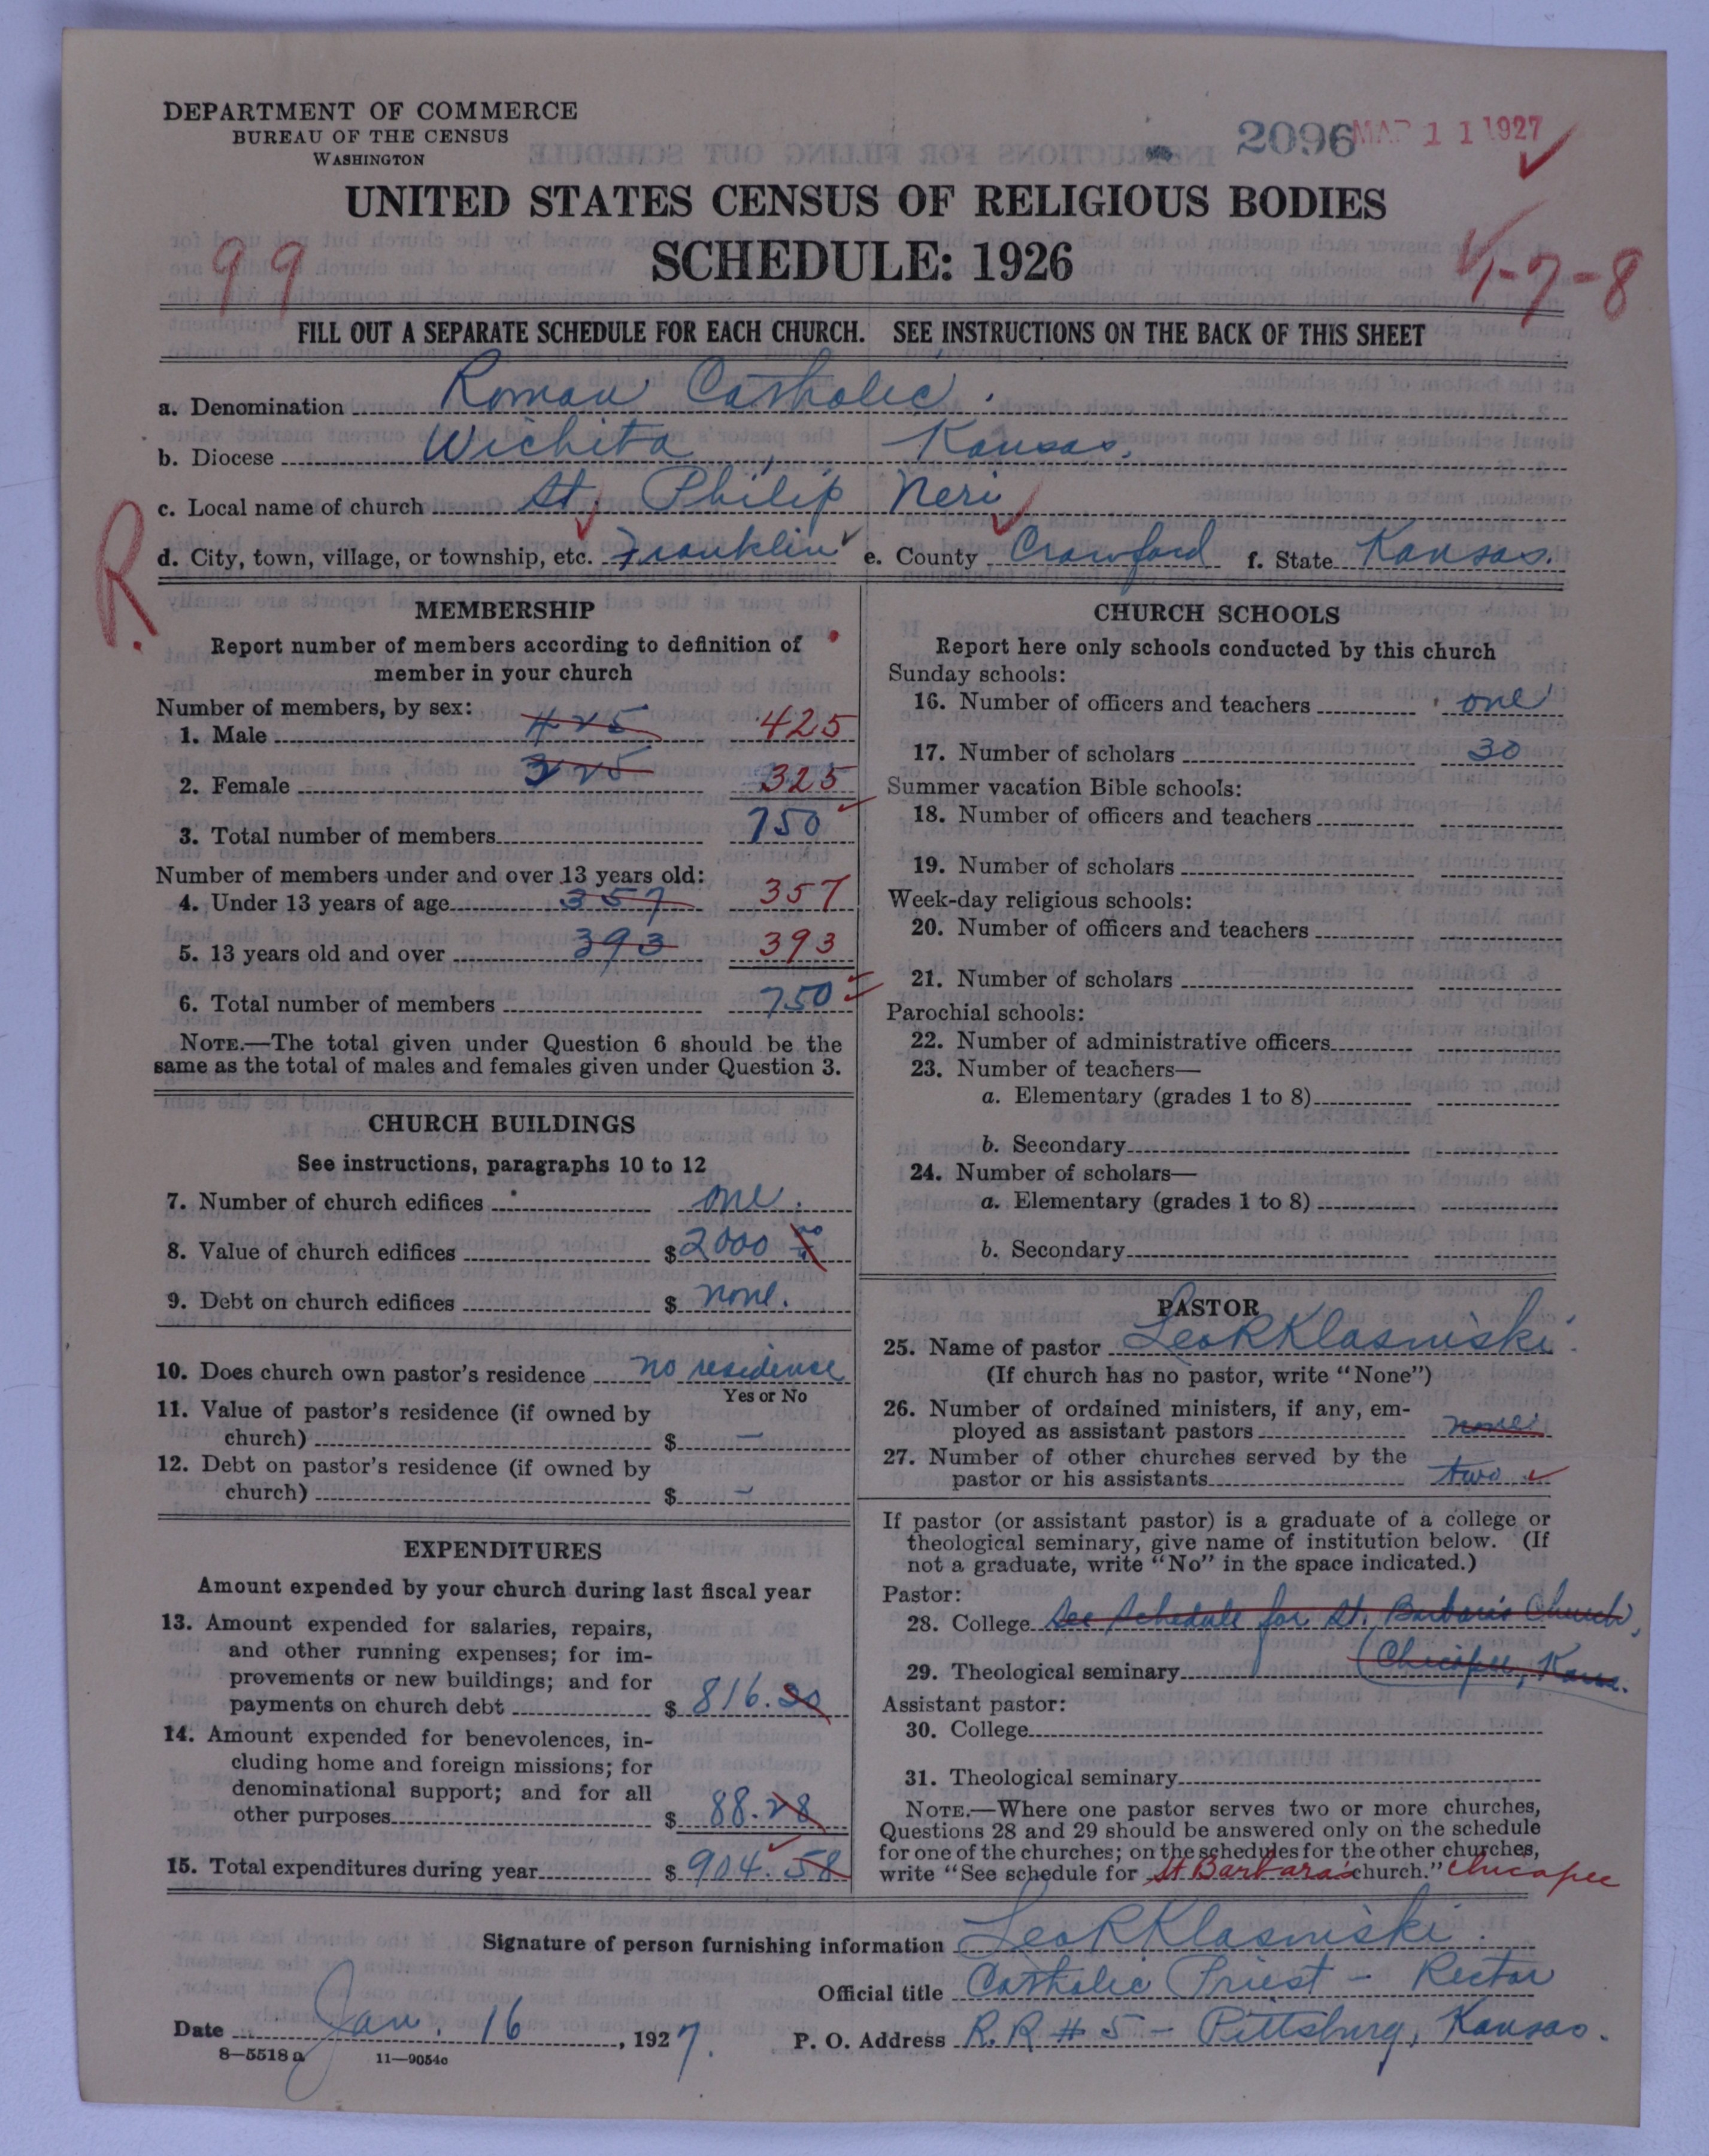 DEPARTMENT OF COMMERCE
BUREAU OF THE CENSUS
WASHINGTON
2096 MAR 11 1927
UNITED STATES CENSUS OF RELIGIOUS BODIES
SCHEDULE: 1926
99
4-7-8
FILL OUT A SEPARATE SCHEDULE FOR EACH CHURCH. SEE INSTRUCTIONS ON THE BACK OF THIS SHEET
a. Denomination Roman Catholic.
b. Diocese Wichita, Kansas.
c. Local name of church St. Philip Neri
d. City, town, village, or township, etc. Franklin e. County Crawford f. State Kansas.
R.
MEMBERSHIP
Report number of members according to definition of
member in your church
Number of members, by sex:
1. Male 425 425
2. Female 325 325
3. Total number of members 750
Number of members under and over 13 years old:
4. Under 13 years of age 357 357
5. 13 years old and over 393 393
6. Total number of members 750
NOTE.—The total given under Question 6 should be the
same as the total of males and females given under Question 3.
CHURCH BUILDINGS
See instructions, paragraphs 10 to 12
7. Number of church edifices one.
8. Value of church edifices $2000
9. Debt on church edifices $ none.
10. Does church own pastor's residence no residence
Yes or No
11. Value of pastor's residence (if owned by
church) $ —
12. Debt on pastor's residence (if owned by
church) $ —
EXPENDITURES
Amount expended by your church during last fiscal year
13. Amount expended for salaries, repairs,
and other running expenses; for im-
provements or new buildings; and for
payments on church debt $ 816.
14. Amount expended for benevolences, in-
cluding home and foreign missions; for
denominational support; and for all
other purposes $ 88.28
15. Total expenditures during year $ 904.58
CHURCH SCHOOLS
Report here only schools conducted by this church
Sunday schools:
16. Number of officers and teachers one
17. Number of scholars 30
Summer vacation Bible schools:
18. Number of officers and teachers
19. Number of scholars
Week-day religious schools:
20. Number of officers and teachers
21. Number of scholars
Parochial schools:
22. Number of administrative officers
23. Number of teachers—
a. Elementary (grades 1 to 8)
b. Secondary
24. Number of scholars—
a. Elementary (grades 1 to 8)
b. Secondary
PASTOR
25. Name of pastor Leo R Klasinski
(If church has no pastor, write "None")
26. Number of ordained ministers, if any, em-
ployed as assistant pastors none
27. Number of other churches served by the
pastor or his assistants two
If pastor (or assistant pastor) is a graduate of a college or
theological seminary, give name of institution below. (If
not a graduate, write "No" in the space indicated.)
Pastor:
28. College See schedule for St. Barbara's Church,
29. Theological seminary (Chicopee, Kans.
Assistant pastor:
30. College
31. Theological seminary
NOTE.—Where one pastor serves two or more churches,
Questions 28 and 29 should be answered only on the schedule
for one of the churches; on the schedules for the other churches,
write "See schedule for St Barbara's church." Chicopee
Signature of person furnishing information Leo R Klasinski.
Official title Catholic Priest - Rector
Date Jan. 16, 1927. P. O. Address R.R # 5 - Pittsburg, Kansas.
8—5518 a 11—9054c